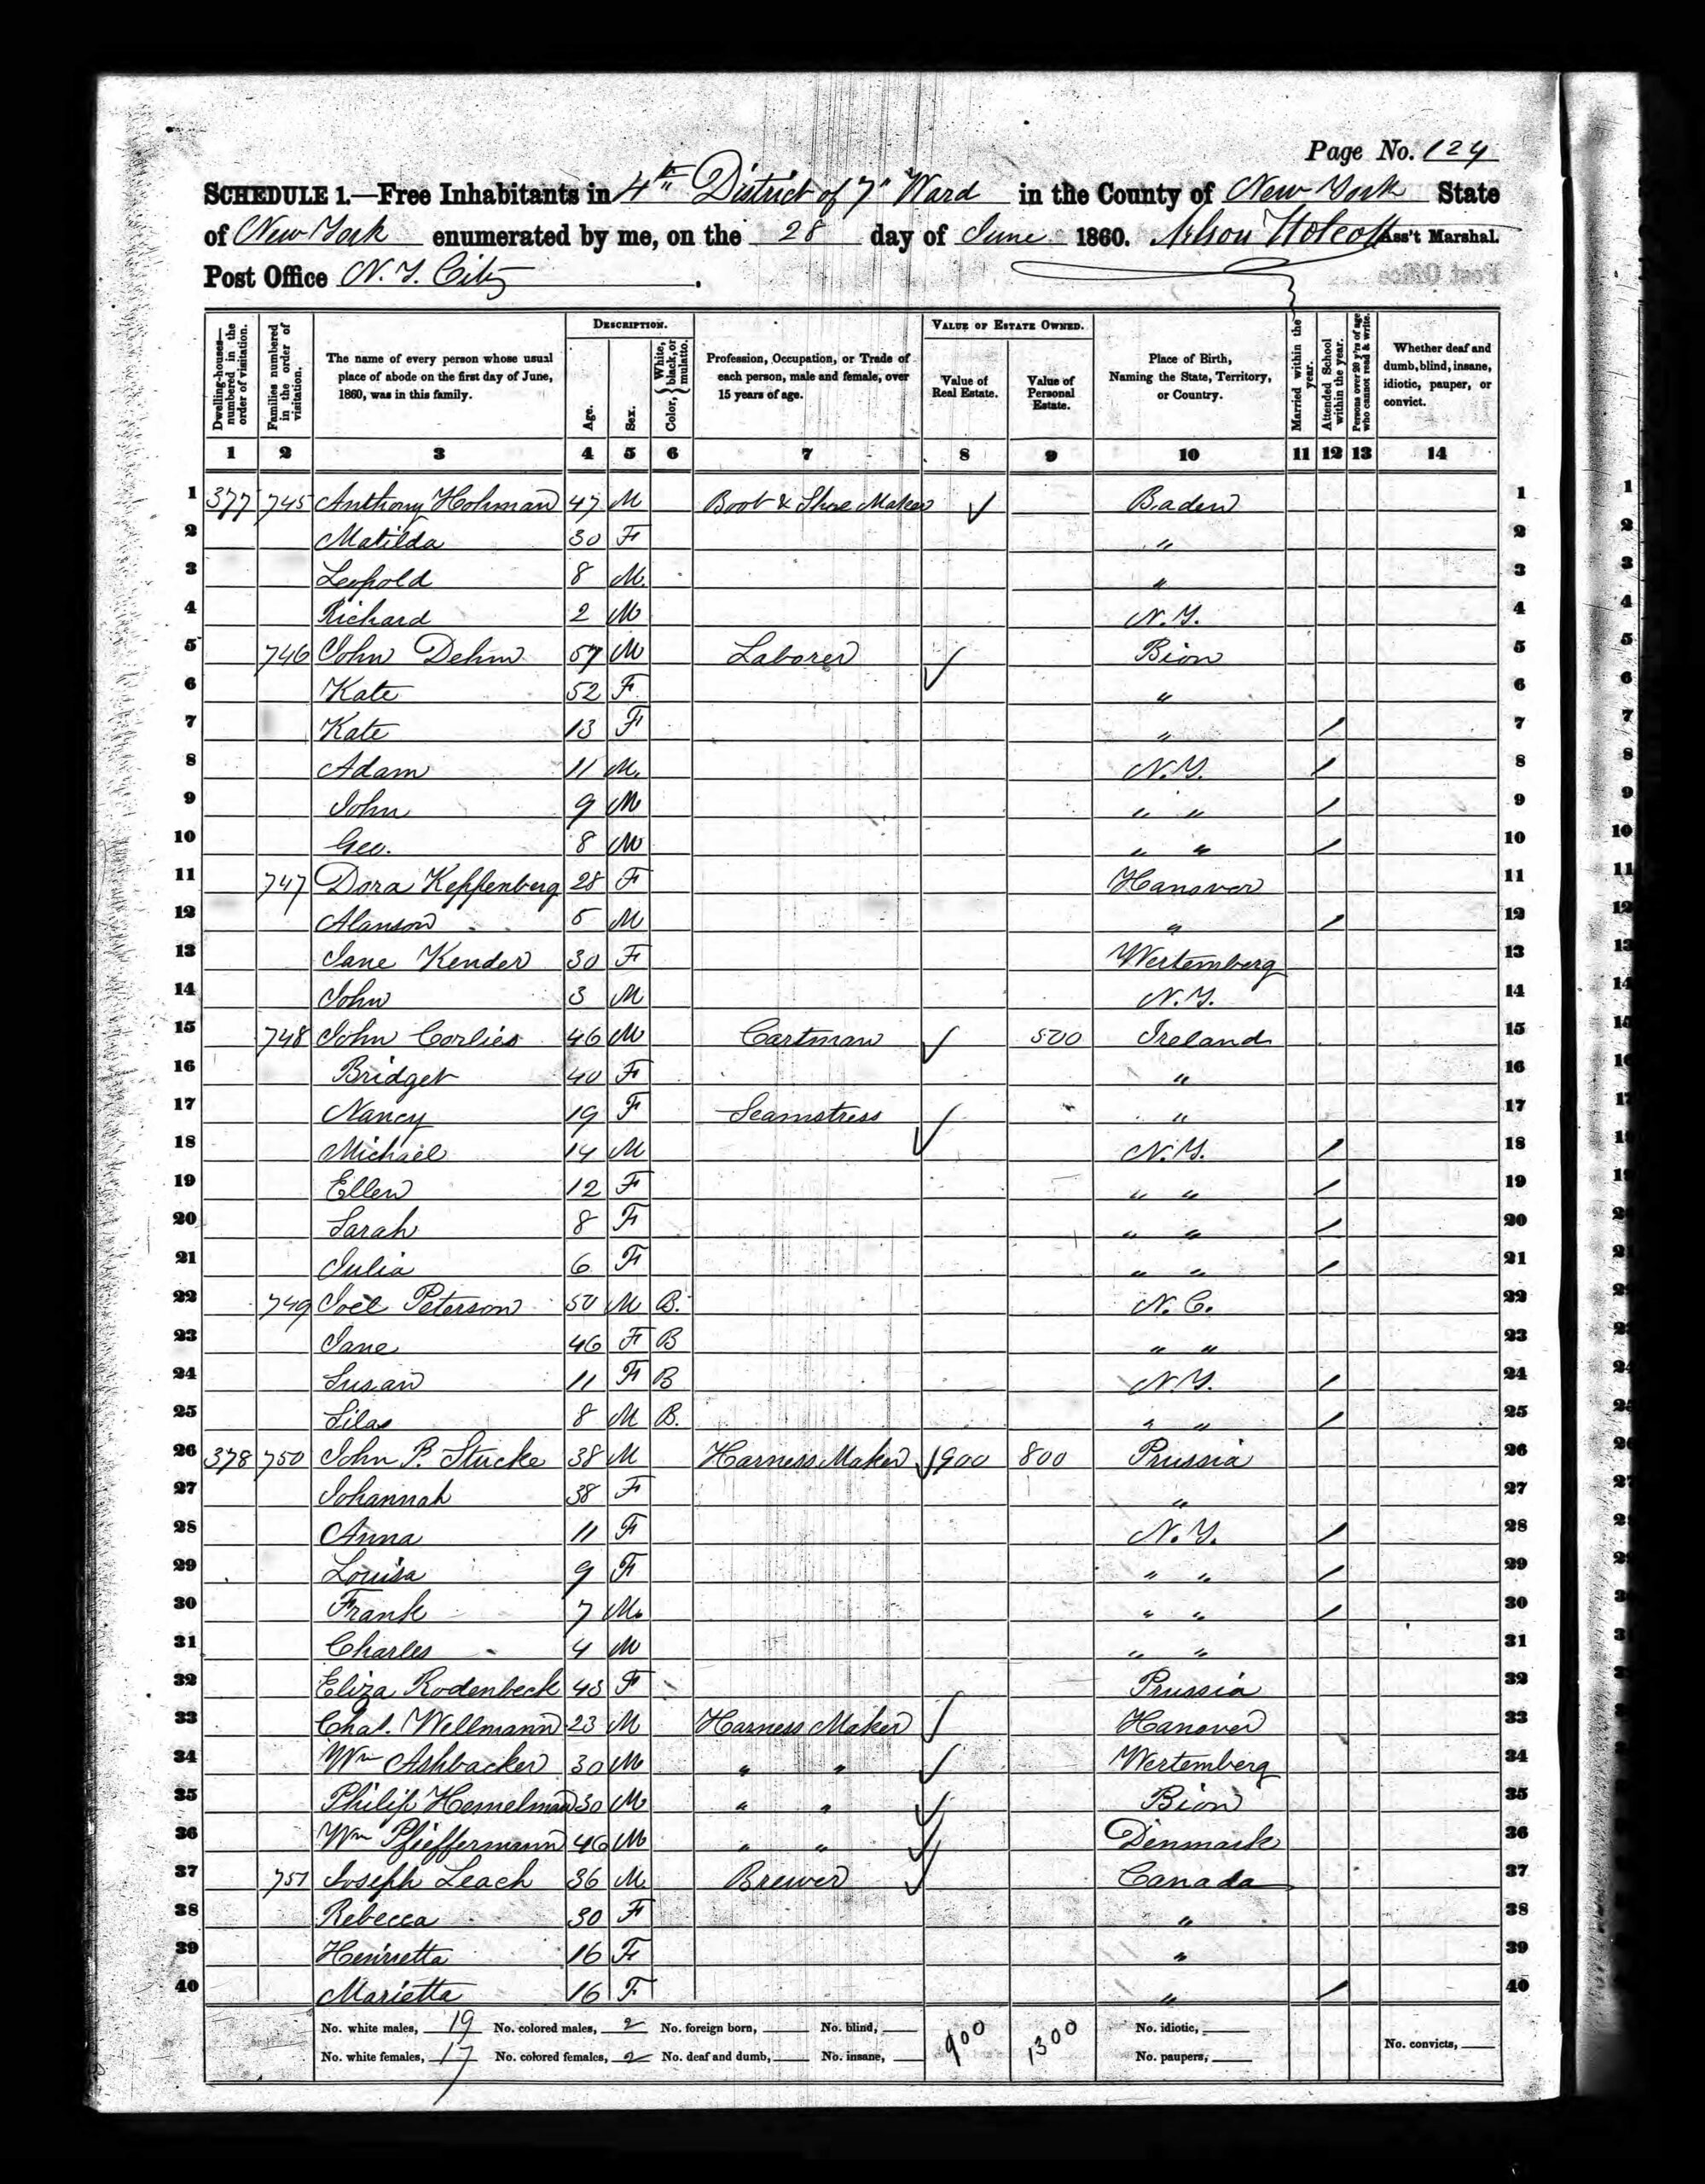 Page No. 124
SCHEDULE 1.—Free Inhabitants in 4th District of 7" Ward in the County of New York State
of New York enumerated by me, on the 28 day of June 1860. Nelson Holcott Ass't Marshal.
Post Office N.Y. City.
Dwelling-houses—numbered in the order of visitation.
Families numbered in the order of visitation.
The name of every person whose usual place of abode on the first day of June, 1860, was in this family.
DESCRIPTION.
Age.
Sex.
Color, { White, black, or mulatto.
Profession, Occupation, or Trade of each person, male and female, over 15 years of age.
VALUE OF ESTATE OWNED.
Value of Real Estate.
Value of Personal Estate.
Place of Birth, Naming the State, Territory, or Country.
Married within the year.
Attended School within the year.
Persons over 20 y'rs of age who cannot read & write.
Whether deaf and dumb, blind, insane, idiotic, pauper, or convict.
1 2 3 4 5 6 7 8 9 10 11 12 13 14
1 377 745 Anthony Hohman 47 M Boot & Shoe Maker ✓ Baden 1
2 Matilda 30 F " 2
3 Leopold 8 M. " 3
4 Richard 2 M N.Y. 4
5 746 John Dehm 57 M Laborer ✓ Bion 5
6 Kate 52 F " 6
7 Kate 13 F " / 7
8 Adam 11 M. N.Y. / 8
9 John 9 M " " / 9
10 Geo. 8 M " " / 10
11 747 Dora Keppenberg 28 F Hanover 11
12 Alanson 5 M " / 12
13 Jane Kender 30 F Wertemberg 13
14 John 3 M N.Y. 14
15 748 John Corlies 46 M Cartman ✓ 500 Ireland 15
16 Bridget 40 F " 16
17 Nancy 19 F Seamstress ✓ " 17
18 Michael 14 M N.Y. / 18
19 Ellen 12 F " " / 19
20 Sarah 8 F " " / 20
21 Julia 6 F " " / 21
22 749 Joel Peterson 50 M B. N.C. 22
23 Jane 46 F B " " 23
24 Susan 11 F B N.Y. / 24
25 Silas 8 M B. " " / 25
26 378 750 John P. Stucke 38 M Harness Maker ✓ 900 800 Prussia 26
27 Johannah 38 F " 27
28 Anna 11 F N.Y. / 28
29 Louisa 9 F " " / 29
30 Frank 7 M. " " / 30
31 Charles 4 M " " 31
32 Eliza Rodenbeck 43 F Prussia 32
33 Chal. Wellmann 23 M Harness Maker ✓ Hanover 33
34 Wm Ashbacker 30 M " " ✓ Wertemberg 34
35 Philip Hemelman 30 M " " ✓ Bion 35
36 Wm Pfieffermann 46 M " " ✓ Denmark 36
37 751 Joseph Leach 36 M Brewer ✓ Canada 37
38 Rebecca 30 F " 38
39 Henrietta 16 F " 39
40 Marietta 16 F " / 40
No. white males, 19 No. colored males, 2 No. foreign born, No. blind, 900 1300 No. idiotic,
No. white females, 17 No. colored females, 2 No. deaf and dumb, No. insane, No. paupers, No. convicts,